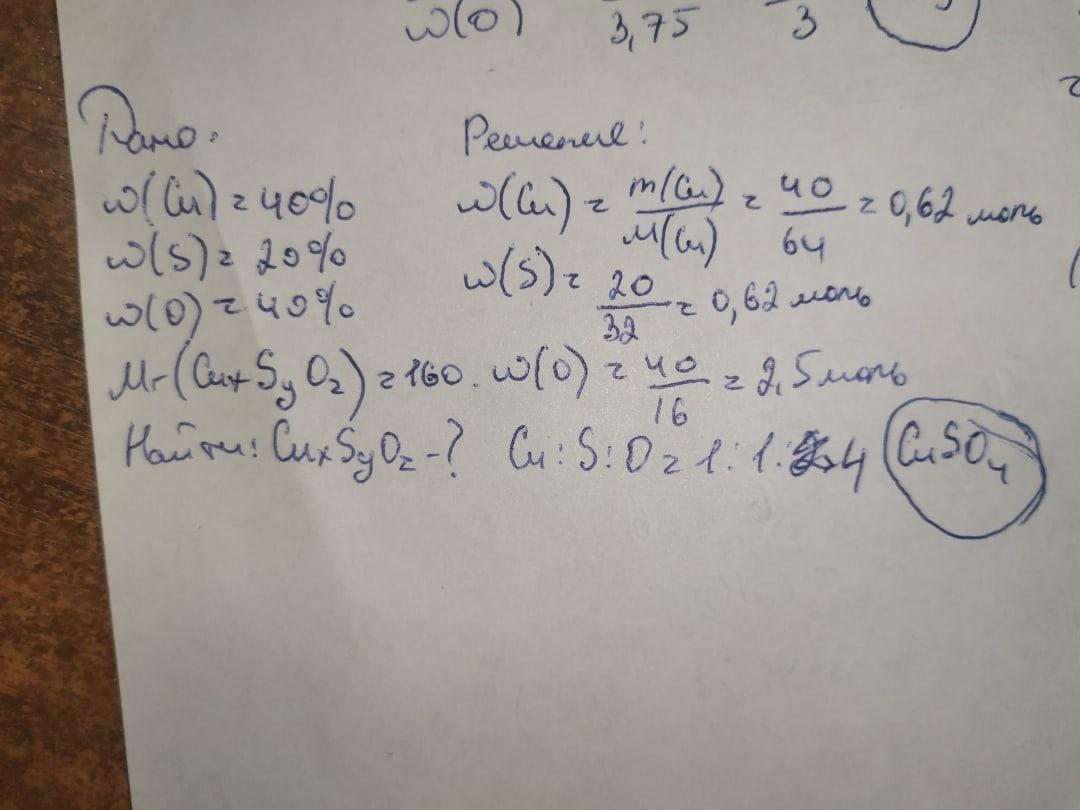 w(O) 3,75 3
Дано:
Решение:
w(Cu) = 40%
w(S) = 20%
w(O) = 40%
Mr(CuxSyOz) = 160.
Найти: CuxSyOz - ?
w(Cu) = m(Cu)/M(Cu) = 40/64 = 0,62 моль
w(S) = 20/32 = 0,62 моль
w(O) = 40/16 = 2,5 моль
Cu : S : O = 1 : 1 : 4
CuSO4